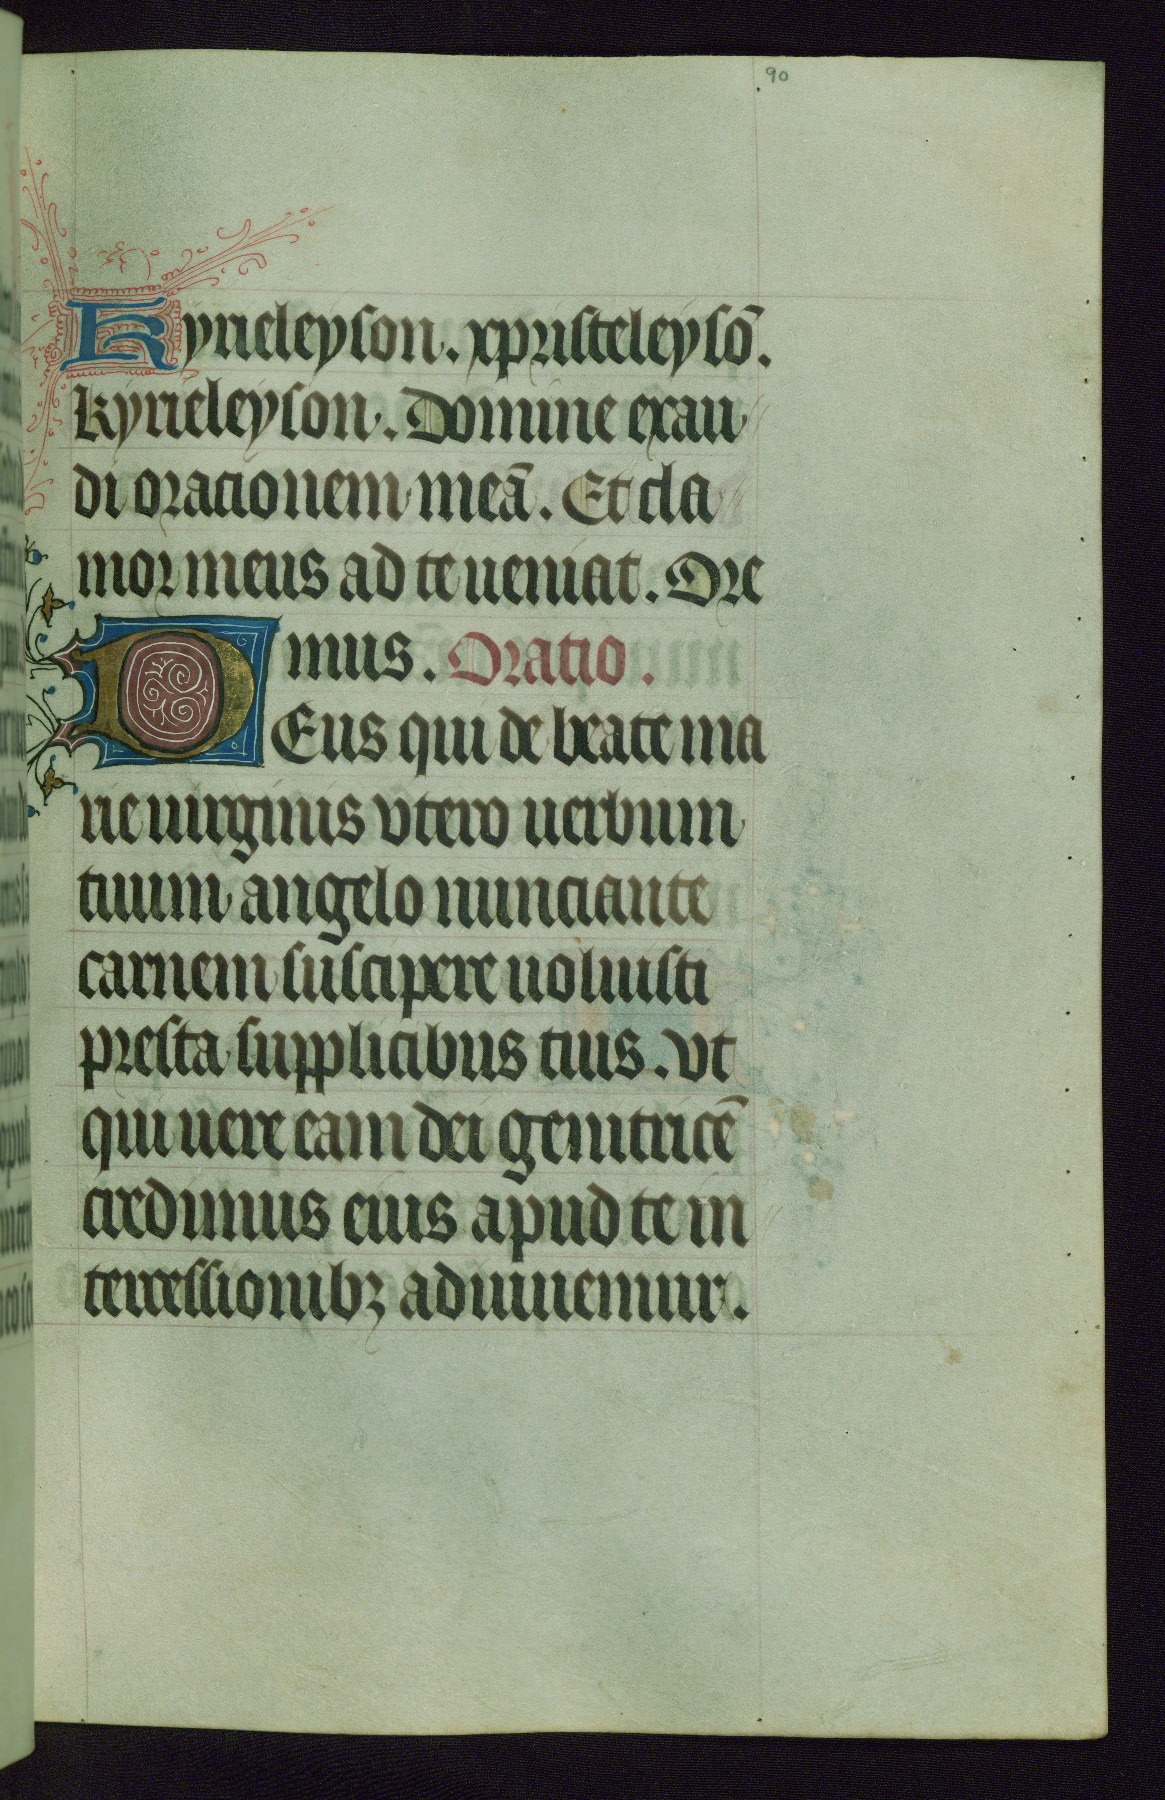 90
Kyrieleyson. xpristeleysō.
kyrieleyson. Domine exau
di orationem meā. Et cla
mor meus ad te ueniat. Ore
mus. Oratio.
DEus qui de beate ma
rie uirginis vtero uerbum
tuum angelo nunciante
carnem suscipere uoluisti
presta supplicibus tuis. vt
qui uere eam dei genitricē
credimus eius apud te in
tercessionibꝫ adiuuemur.